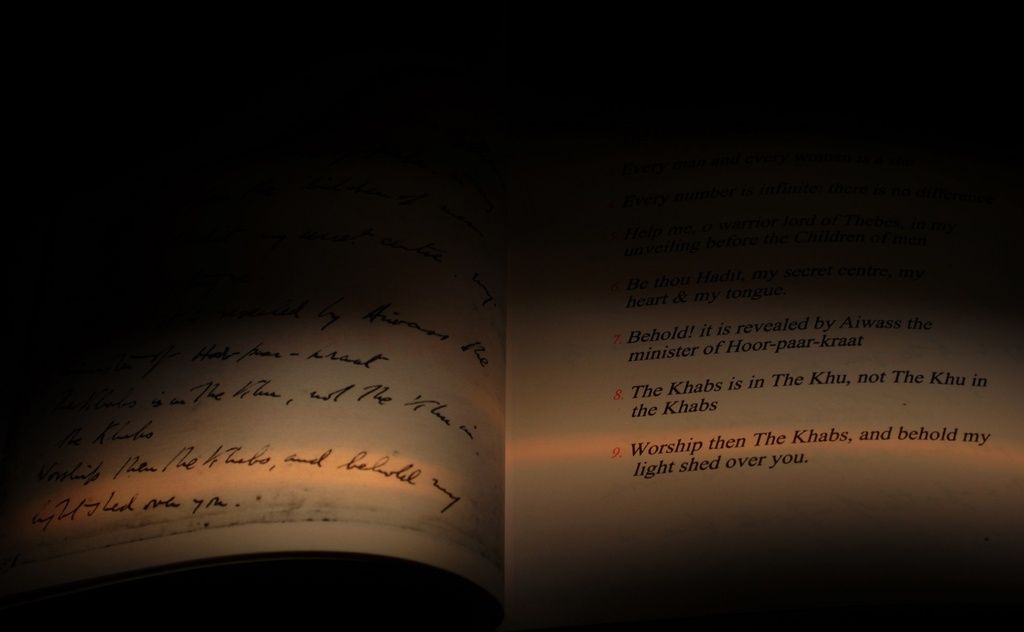 the children of men
my secret centre, my
tongue
revealed by Aiwass the
minister of Hoor-paar-kraat
The Khabs is in the Khu, not the Khu in
the Khabs
Worship then the Khabs, and behold my
light shed over you.
Every man and every woman is a star
4. Every number is infinite: there is no difference
5. Help me, o warrior lord of Thebes, in my
unveiling before the Children of men
6. Be thou Hadit, my secret centre, my
heart & my tongue.
7. Behold! it is revealed by Aiwass the
minister of Hoor-paar-kraat
8. The Khabs is in The Khu, not The Khu in
the Khabs
9. Worship then The Khabs, and behold my
light shed over you.